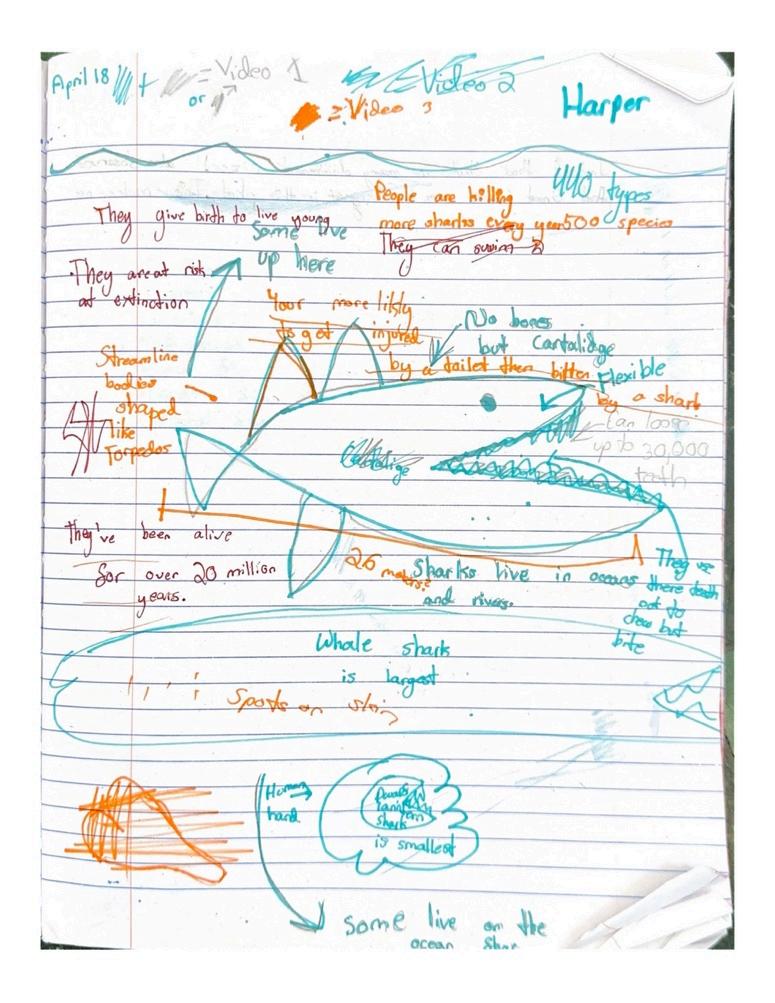 April 18
= Video 1
or
= Video 2
= Video 3
Harper
440 types
People are killing
more sharks every year 500 species
They can swim
They give birth to live young
Some live
up here
They are at risk
at extinction
Your more likly
to get injured
by a toilet then bitten
by a shark
No bones
but Cantalidge
Flexible
Streamline
bodies
shaped
like
Torpedos
Can loose
up to 30,000
teeth
They've been alive
for over 20 million
years.
26 meters?
Sharks live in oceans
and rivers.
They use
there
not to
chew but
bite
Whale shark
is largest
Spots on skin
Human
hand
Dwarf
lantern
shark
is smallest
some live on the
ocean